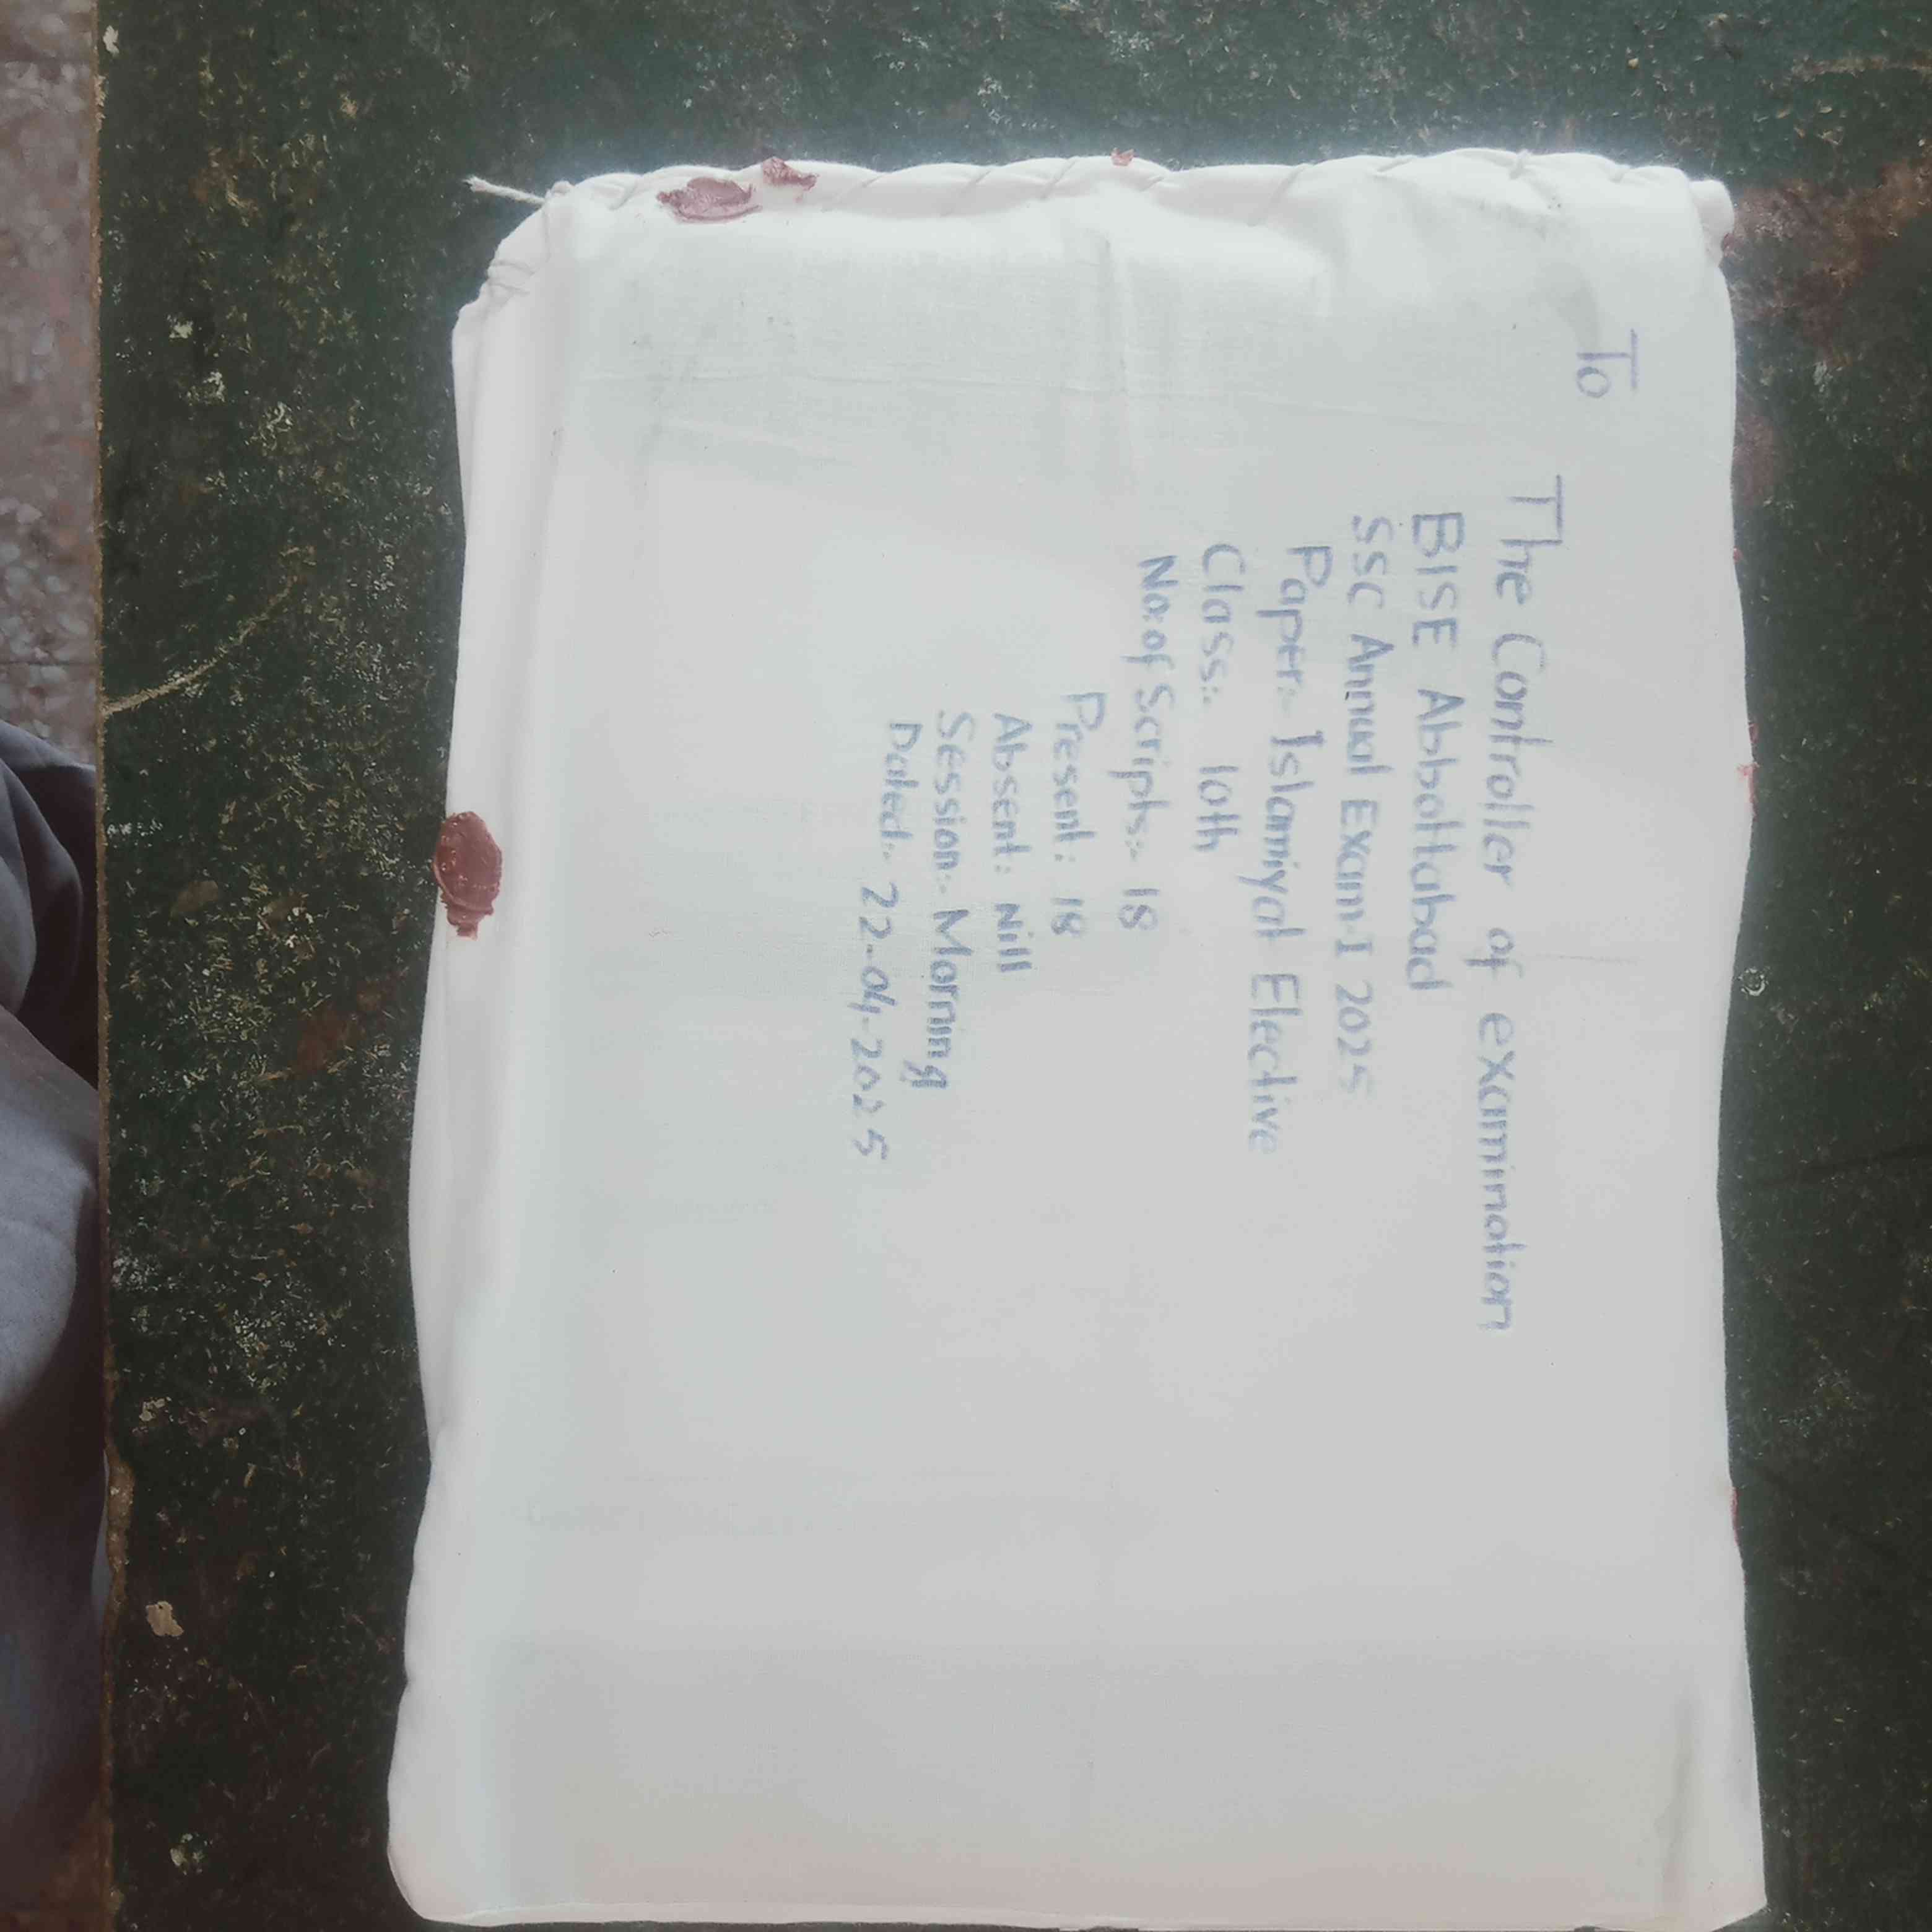 To
The Controller of examination
BISE Abbottabad
SSC Annual Exam-I 2025
Paper:- Islamiyat Elective
Class:- 10th
No: of Scripts:- 18
Present: 18
Absent: Nill
Session:- Morning
Dated:- 22-04-2025